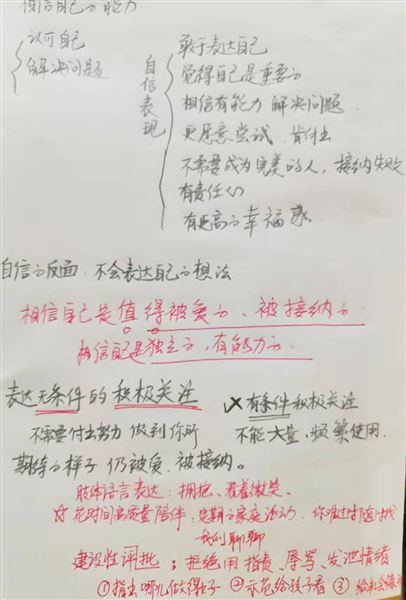 相信自己的能力
认可自己
解决问题
自信表现
敢于表达自己
觉得自己是重要的
相信有能力 解决问题
更愿意尝试 肯付出
不需要成为完美的人，接纳失败
有责任心
有更高的幸福感
自信的反面：不会表达自己的想法
相信自己是值得被爱的、被接纳的
相信自己是独立的，有能力的
表达无条件的积极关注
✗有条件积极关注
不需要付出努力 做到你所
不能大量、频繁使用.
期待的样子 仍被爱、被接纳。
肢体语言表达：拥抱、看着微笑。
☆ 花时间高质量陪伴：定期的家庭活动、你难过时随时找
我们聊聊
建设性评批；拒绝用 指责、辱骂、发泄情绪
①指出哪儿做得好 ②示范给孩子看 ③给机会